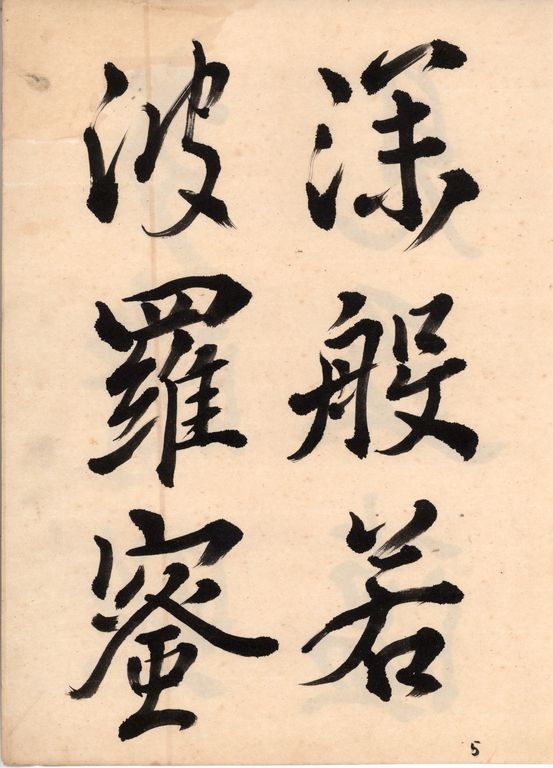 深般若
波羅蜜
5